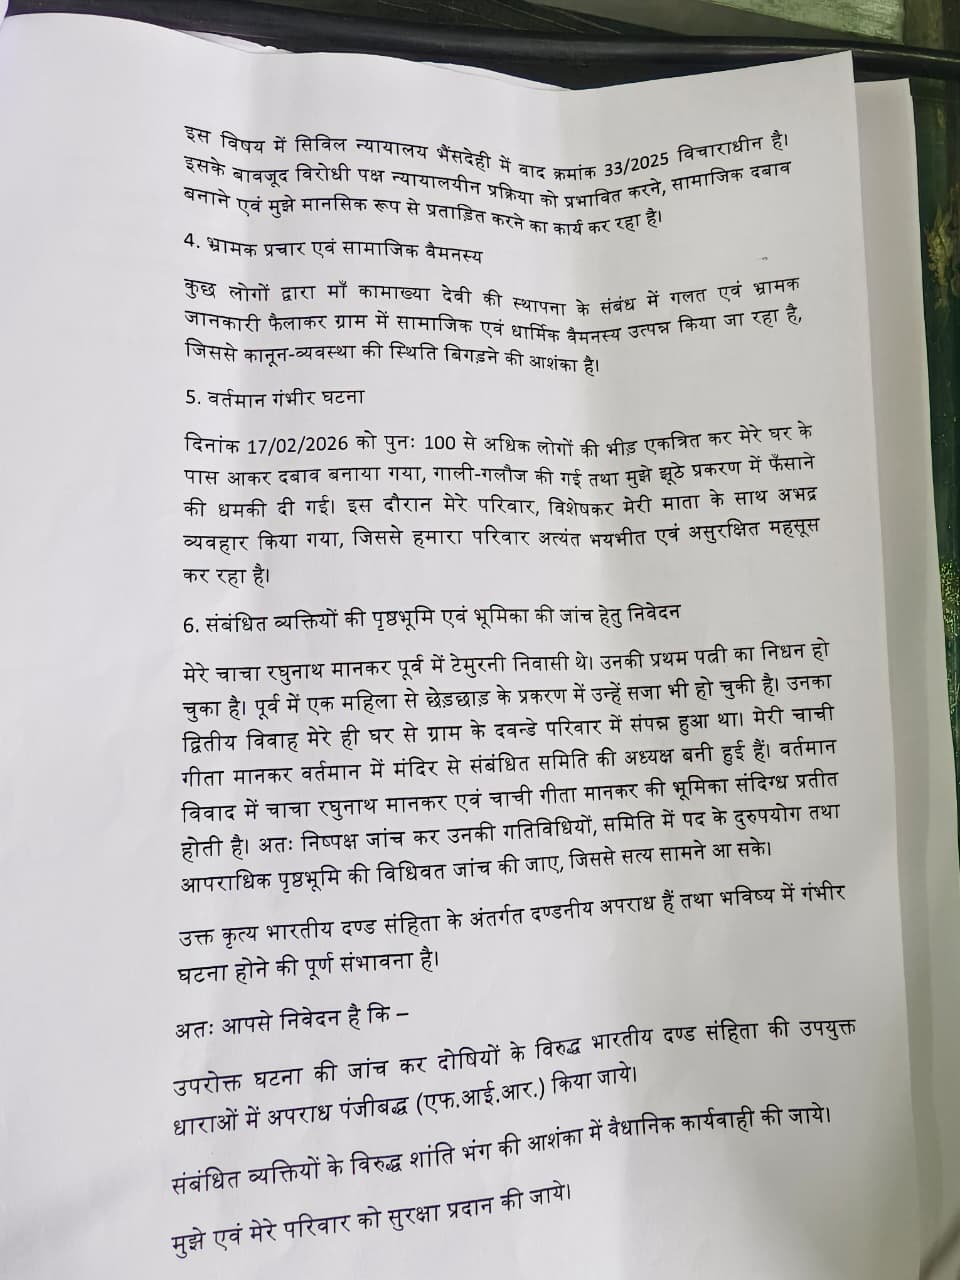 इस विषय में सिविल न्यायालय भैंसदेही में वाद क्रमांक 33/2025 विचाराधीन है।
इसके बावजूद विरोधी पक्ष न्यायालयीन प्रक्रिया को प्रभावित करने, सामाजिक दबाव
बनाने एवं मुझे मानसिक रूप से प्रताड़ित करने का कार्य कर रहा है।
4. भ्रामक प्रचार एवं सामाजिक वैमनस्य
कुछ लोगों द्वारा माँ कामाख्या देवी की स्थापना के संबंध में गलत एवं भ्रामक
जानकारी फैलाकर ग्राम में सामाजिक एवं धार्मिक वैमनस्य उत्पन्न किया जा रहा है,
जिससे कानून-व्यवस्था की स्थिति बिगड़ने की आशंका है।
5. वर्तमान गंभीर घटना
दिनांक 17/02/2026 को पुनः 100 से अधिक लोगों की भीड़ एकत्रित कर मेरे घर के
पास आकर दबाव बनाया गया, गाली-गलौज की गई तथा मुझे झूठे प्रकरण में फँसाने
की धमकी दी गई। इस दौरान मेरे परिवार, विशेषकर मेरी माता के साथ अभद्र
व्यवहार किया गया, जिससे हमारा परिवार अत्यंत भयभीत एवं असुरक्षित महसूस
कर रहा है।
6. संबंधित व्यक्तियों की पृष्ठभूमि एवं भूमिका की जांच हेतु निवेदन
मेरे चाचा रघुनाथ मानकर पूर्व में टेमुरनी निवासी थे। उनकी प्रथम पत्नी का निधन हो
चुका है। पूर्व में एक महिला से छेड़छाड़ के प्रकरण में उन्हें सजा भी हो चुकी है। उनका
द्वितीय विवाह मेरे ही घर से ग्राम के दवन्डे परिवार में संपन्न हुआ था। मेरी चाची
गीता मानकर वर्तमान में मंदिर से संबंधित समिति की अध्यक्ष बनी हुई हैं। वर्तमान
विवाद में चाचा रघुनाथ मानकर एवं चाची गीता मानकर की भूमिका संदिग्ध प्रतीत
होती है। अतः निष्पक्ष जांच कर उनकी गतिविधियों, समिति में पद के दुरुपयोग तथा
आपराधिक पृष्ठभूमि की विधिवत जांच की जाए, जिससे सत्य सामने आ सके।
उक्त कृत्य भारतीय दण्ड संहिता के अंतर्गत दण्डनीय अपराध हैं तथा भविष्य में गंभीर
घटना होने की पूर्ण संभावना है।
अतः आपसे निवेदन है कि –
उपरोक्त घटना की जांच कर दोषियों के विरुद्ध भारतीय दण्ड संहिता की उपयुक्त
धाराओं में अपराध पंजीबद्ध (एफ.आई.आर.) किया जाये।
संबंधित व्यक्तियों के विरुद्ध शांति भंग की आशंका में वैधानिक कार्यवाही की जाये।
मुझे एवं मेरे परिवार को सुरक्षा प्रदान की जाये।